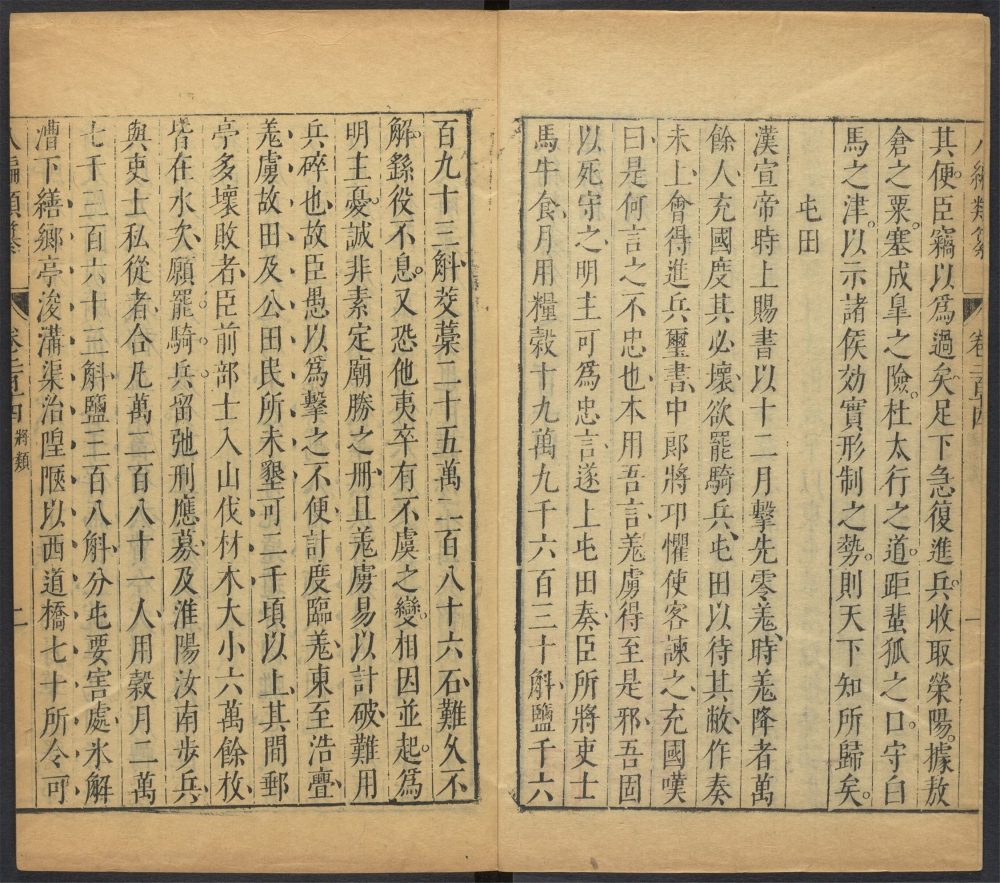 八編類纂
卷二百四
一
其便臣竊以爲過矣足下急復進兵收取榮陽據敖
倉之粟塞成皐之險杜太行之道距蜚狐之口守白
馬之津以示諸侯効實形制之勢則天下知所歸矣
屯田
漢宣帝時上賜書以十二月擊先零羌時羌降者萬
餘人充國度其必壞欲罷騎兵屯田以待其敝作奏
未上會得進兵璽書中郎將卭懼使客諫之充國嘆
曰是何言之不忠也本用吾言羌虜得至是邪吾固
以死守之明主可爲忠言遂上屯田奏臣所將吏士
馬牛食月用糧穀十九萬九千六百三十斛鹽千六
百九十三斛茭藁二十五萬二百八十六石難久不
解繇役不息又恐他夷卒有不虞之變相因並起爲
明主憂誠非素定廟勝之册且羌虜易以計破難用
兵碎也故臣愚以爲擊之不便計度臨羌東至浩亹
羌虜故田及公田民所未墾可二千頃以上其間郵
亭多壞敗者臣前部士入山伐材木大小六萬餘枚
皆在水次願罷騎兵留弛刑應募及淮陽汝南步兵
與吏士私從者合凡萬二百八十一人用穀月二萬
七千三百六十三斛鹽三百八斛分屯要害處氷解
漕下繕鄉亭浚溝渠治隍陿以西道橋七十所令可
八編類纂
卷二百四
將類
二